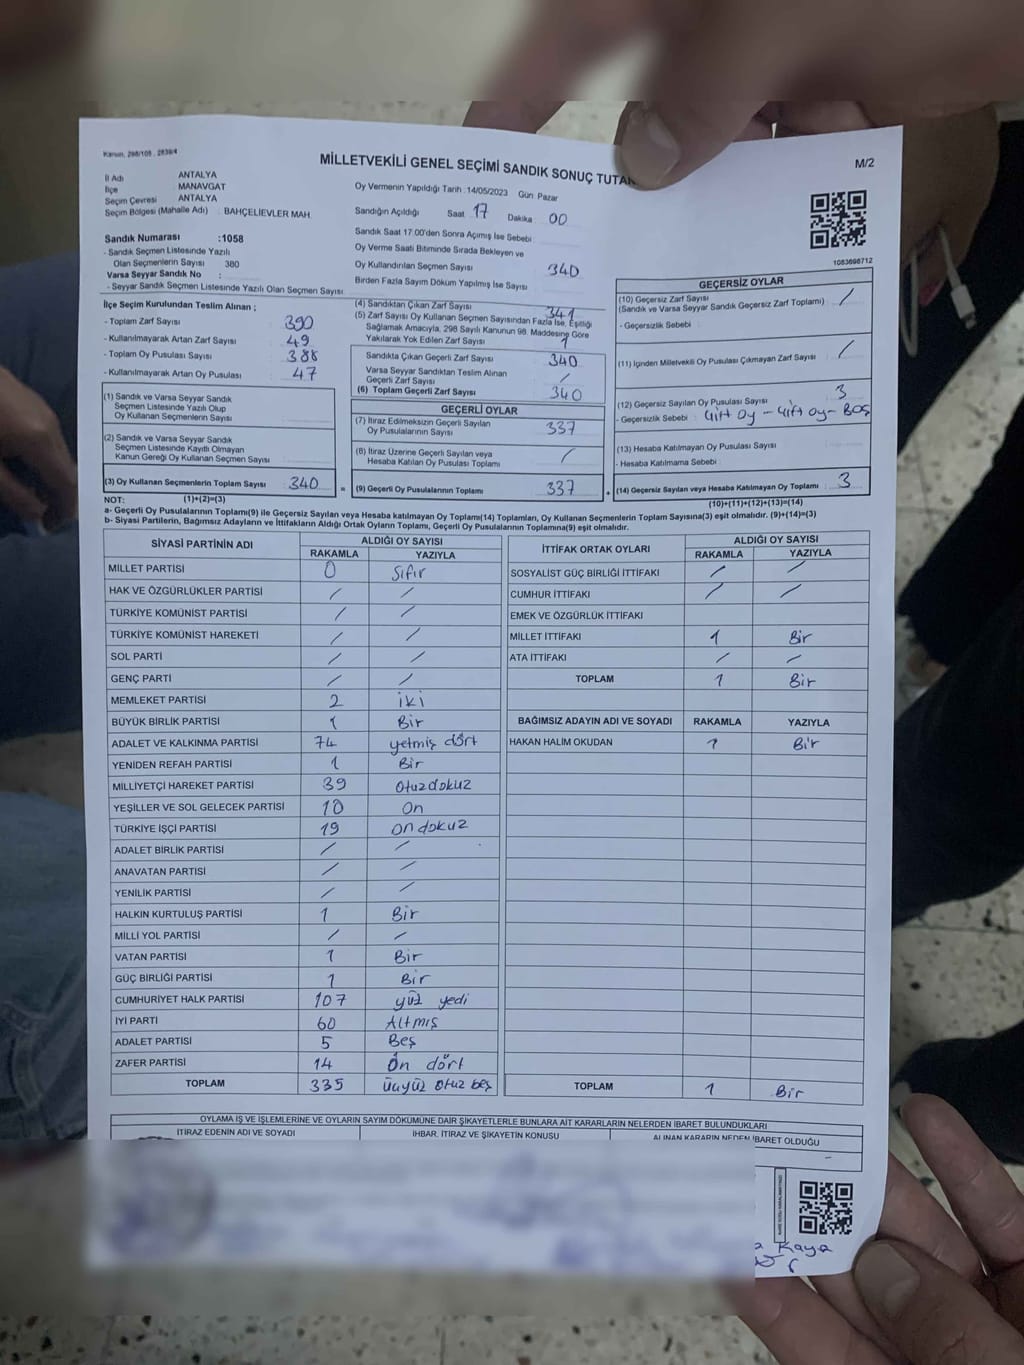 Kanun, 298/105, 2839/4
MİLLETVEKİLİ GENEL SEÇİMİ SANDIK SONUÇ TUTAN
M/2
İl Adı ANTALYA
İlçe MANAVGAT
Seçim Çevresi ANTALYA
Seçim Bölgesi (Mahalle Adı) : BAHÇELİEVLER MAH.
Sandık Numarası :1058
- Sandık Seçmen Listesinde Yazılı
Olan Seçmenlerin Sayısı 380
Varsa Seyyar Sandık No :
- Seyyar Sandık Seçmen Listesinde Yazılı Olan Seçmen Sayısı
Oy Vermenin Yapıldığı Tarih : 14/05/2023 Gün: Pazar
Sandığın Açıldığı Saat 17 Dakika 00
Sandık Saat 17:00'den Sonra Açmış İse Sebebi
Oy Verme Saati Bitiminde Sırada Bekleyen ve
Oy Kullandırılan Seçmen Sayısı 340
Birden Fazla Sayım Döküm Yapılmış İse Sayısı
1083698712
İlçe Seçim Kurulundan Teslim Alınan ;
- Toplam Zarf Sayısı 390
- Kullanılmayarak Artan Zarf Sayısı 49
- Toplam Oy Pusulası Sayısı 388
- Kullanılmayarak Artan Oy Pusulası 47
(1) Sandık ve Varsa Seyyar Sandık
Seçmen Listesinde Yazılı Olup
Oy Kullanan Seçmenlerin Sayısı
(2) Sandık ve Varsa Seyyar Sandık
Seçmen Listesinde Kayıtlı Olmayan
Kanun Gereği Oy Kullanan Seçmen Sayısı
(3) Oy Kullanan Seçmenlerin Toplam Sayısı 340
(1)+(2)=(3)
(4) Sandıktan Çıkan Zarf Sayısı 341
(5) Zarf Sayısı Oy Kullanan Seçmen Sayısından Fazla İse, Eşitliği
Sağlamak Amacıyla, 298 Sayılı Kanunun 98. Maddesine Göre
Yakılarak Yok Edilen Zarf Sayısı 1
Sandıkta Çıkan Geçerli Zarf Sayısı 340
Varsa Seyyar Sandıktan Teslim Alınan
Geçerli Zarf Sayısı /
(6) Toplam Geçerli Zarf Sayısı 340
GEÇERLİ OYLAR
(7) İtiraz Edilmeksizin Geçerli Sayılan
Oy Pusulalarının Sayısı 337
(8) İtiraz Üzerine Geçerli Sayılan veya
Hesaba Katılan Oy Pusulası Toplamı /
= (9) Geçerli Oy Pusulalarının Toplamı 337 +
GEÇERSİZ OYLAR
(10) Geçersiz Zarf Sayısı
(Sandık ve Varsa Seyyar Sandık Geçersiz Zarf Toplamı) /
- Geçersizlik Sebebi :
(11) İçinden Milletvekili Oy Pusulası Çıkmayan Zarf Sayısı /
(12) Geçersiz Sayılan Oy Pusulası Sayısı 3
- Geçersizlik Sebebi : Çift oy - Çift oy - Boş
(13) Hesaba Katılmayan Oy Pusulası Sayısı
- Hesaba Katılmama Sebebi :
(14) Geçersiz Sayılan veya Hesaba Katılmayan Oy Toplamı 3
(10)+(11)+(12)+(13)=(14)
NOT:
a- Geçerli Oy Pusulalarının Toplamı(9) ile Geçersiz Sayılan veya Hesaba katılmayan Oy Toplamı(14) Toplamları, Oy Kullanan Seçmenlerin Toplam Sayısına(3) eşit olmalıdır. (9)+(14)=(3)
b- Siyasi Partilerin, Bağımsız Adayların ve İttifakların Aldığı Ortak Oyların Toplamı, Geçerli Oy Pusulalarının Toplamına(9) eşit olmalıdır.
SİYASİ PARTİNİN ADI ALDIĞI OY SAYISI
RAKAMLA YAZIYLA
MİLLET PARTİSİ 0 Sıfır
HAK VE ÖZGÜRLÜKLER PARTİSİ / /
TÜRKİYE KOMÜNİST PARTİSİ / /
TÜRKİYE KOMÜNİST HAREKETİ / /
SOL PARTİ / /
GENÇ PARTİ / /
MEMLEKET PARTİSİ 2 iki
BÜYÜK BİRLİK PARTİSİ 1 Bir
ADALET VE KALKINMA PARTİSİ 74 yetmiş dört
YENİDEN REFAH PARTİSİ 1 Bir
MİLLİYETÇİ HAREKET PARTİSİ 39 otuzdokuz
YEŞİLLER VE SOL GELECEK PARTİSİ 10 on
TÜRKİYE İŞÇİ PARTİSİ 19 ondokuz
ADALET BİRLİK PARTİSİ / /
ANAVATAN PARTİSİ / /
YENİLİK PARTİSİ / /
HALKIN KURTULUŞ PARTİSİ 1 Bir
MİLLİ YOL PARTİSİ / /
VATAN PARTİSİ 1 Bir
GÜÇ BİRLİĞİ PARTİSİ 1 Bir
CUMHURİYET HALK PARTİSİ 107 yüz yedi
İYİ PARTİ 60 Altmış
ADALET PARTİSİ 5 Beş
ZAFER PARTİSİ 14 On dört
TOPLAM 335 üçyüz otuz beş
İTTİFAK ORTAK OYLARI ALDIĞI OY SAYISI
RAKAMLA YAZIYLA
SOSYALİST GÜÇ BİRLİĞİ İTTİFAKI / /
CUMHUR İTTİFAKI / /
EMEK VE ÖZGÜRLÜK İTTİFAKI
MİLLET İTTİFAKI 1 Bir
ATA İTTİFAKI / /
TOPLAM 1 Bir
BAĞIMSIZ ADAYIN ADI VE SOYADI RAKAMLA YAZIYLA
HAKAN HALİM OKUDAN 1 Bir
TOPLAM 1 Bir
OYLAMA İŞ VE İŞLEMLERİNE VE OYLARIN SAYIM DÖKÜMÜNE DAİR ŞİKAYETLERLE BUNLARA AİT KARARLARIN NELERDEN İBARET BULUNDUKLARI
İTİRAZ EDENİN ADI VE SOYADI İHBAR, İTİRAZ VE ŞİKAYETİN KONUSU ALINAN KARARIN NEDEN İBARET OLDUĞU
Kaya